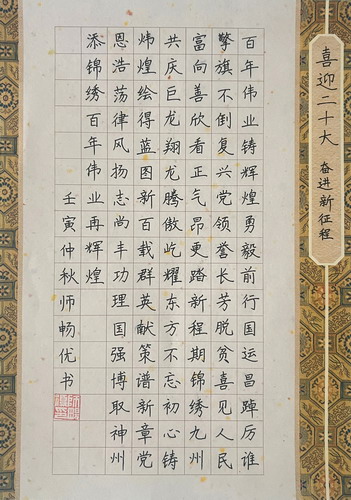 喜迎二十大 奋进新征程
百年伟业铸辉煌勇毅前行国运昌踔厉谁
擎旗不倒复兴党领誉长芳脱贫喜见人民
富向善欣看正气昂更踏新程期锦绣九州
共庆巨龙翔龙腾傲屹耀东方不忘初心铸
炜煌绘得蓝图新百载群英献策谱新章党
恩浩荡律风扬志尚丰功理国强博取神州
添锦绣百年伟业再辉煌
壬寅仲秋师畅优书